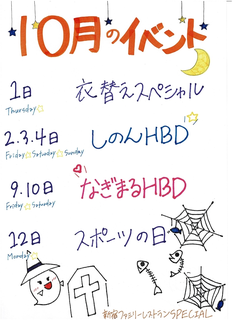 10月のイベント
1日 衣替えスペシャル
Thursday
2.3.4日 しのんHBD
Friday☆Saturday☆Sunday
9.10日 なぎまるHBD
Friday☆Saturday
12日 スポーツの日
Monday
新宿ファミリーレストランSPECIAL